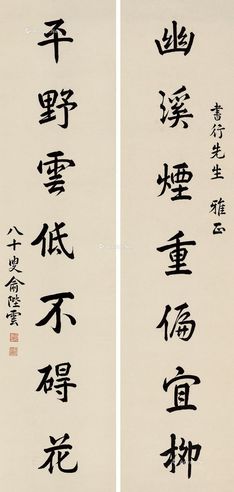 幽溪煙重偏宜柳
書行先生 雅正
平野雲低不碍花
八十叟俞陛雲